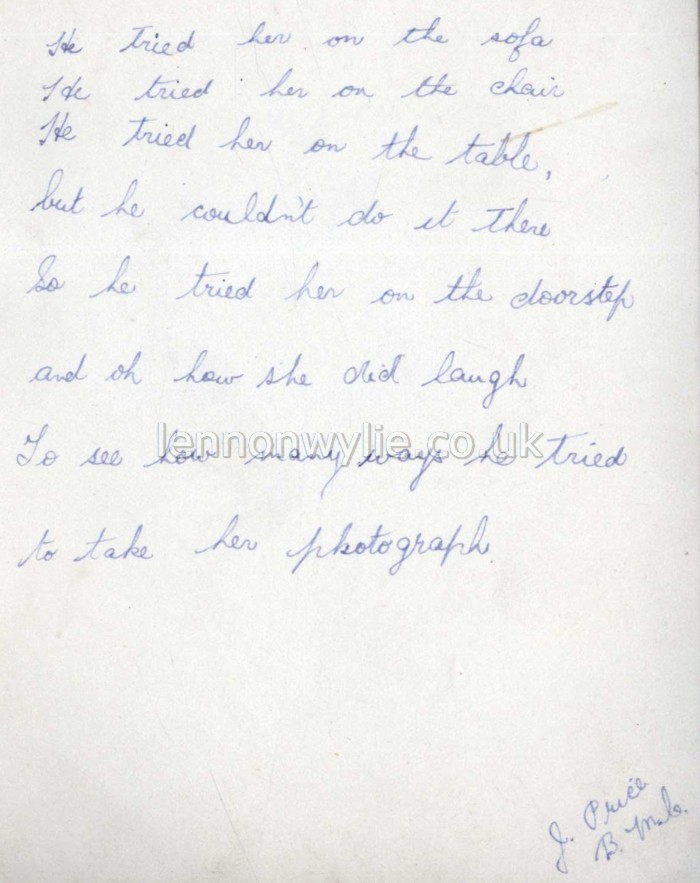 He tried her on the sofa
He tried her on the chair
He tried her on the table,
but he couldn't do it there
So he tried her on the doorstep
and oh how she did laugh
To see how many ways he tried
lennonwylie.co.uk
to take her photograph
J. Price
B.